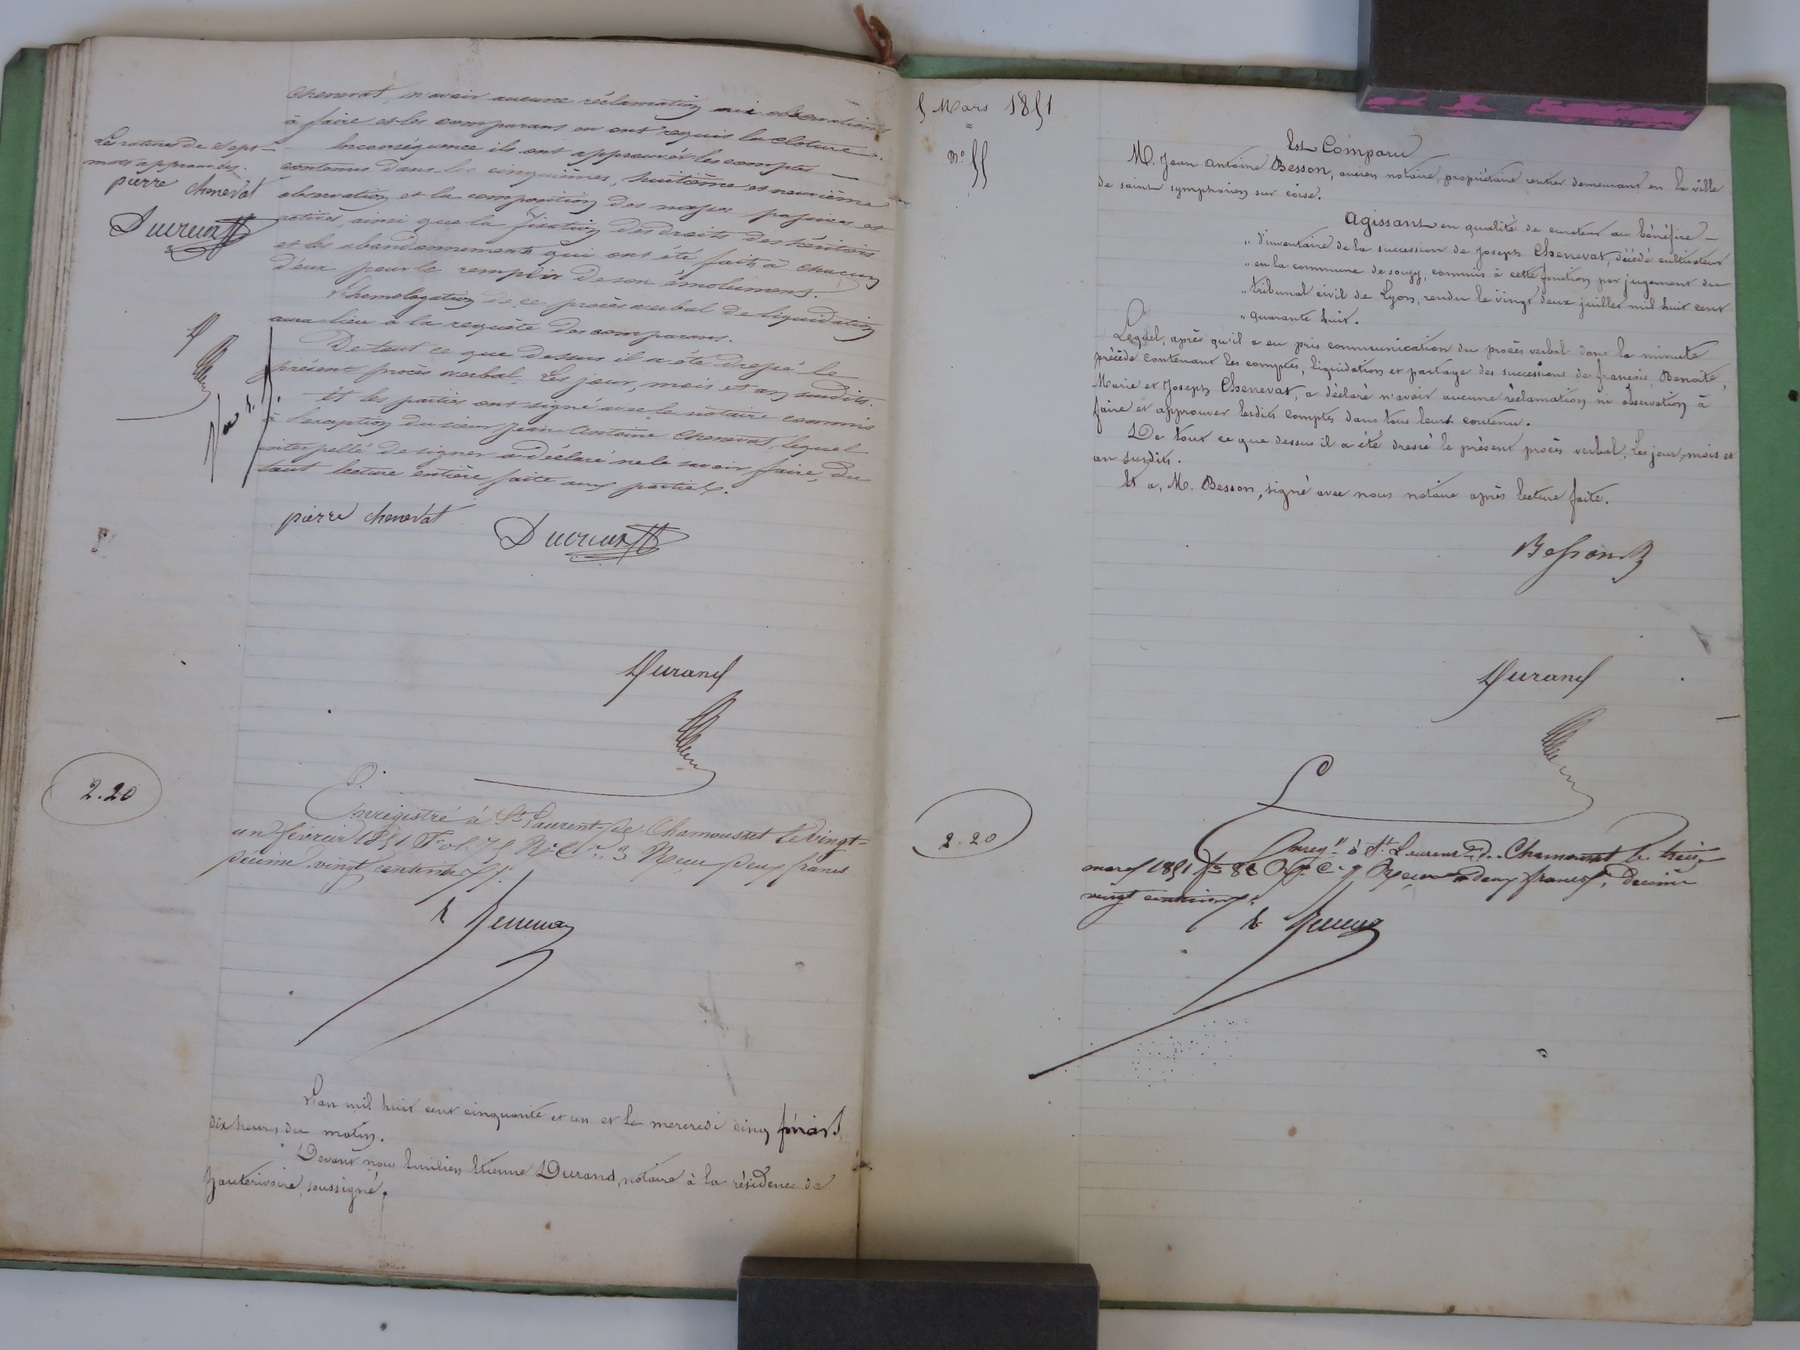 Chenevat, n'avoir aucune réclamation ni observations
à faire et les comparans en ont requis la clôture.
En conséquence ils ont approuvé les comptes —
contenus dans les cinquième, huitième et neuvième
observations et la composition des masses passives et
actives, ainsi que la fixation des droits des héritiers
et les abandonnements qui ont été faits à chacun
d'eux pour le remplir de son émolument.
L'homologation de ce procès verbal de liquidation
aura lieu à la requête des comparans.
De tout ce que dessus il a été dressé le
présent procès verbal. Les jour, mois et an susdits.
Et les parties ont signé avec le notaire commis
à l'exception du sieur Jean Antoine Chenevat, lequel
interpellé de signer a déclaré ne le savoir faire, du
tout lecture entière faite aux parties.
Les ratures de sept —
mots approuvées.
pierre chenevat
Ducreux
pierre chenevat
Ducreux
Durand
2.20
Enregistré à St Laurent-de Chamousset le vingt-
un fevrier 1851 Fol. 75 Ro Ce 3 Reçu deux francs
décime vingt centimes.
L'an mil huit cent cinquante et un et le mercredi cinq mars
dix heures du matin.
Devant nous Emilien Etienne Durand, notaire à la résidence de
hauterivoire, soussigné,
5 Mars 1851
No 55
Est Comparu
M. Jean Antoine Besson, ancien notaire, propriétaire rentier demeurant en la ville
de saint symphorien sur coise.
Agissant en qualité de curateur au bénéfice —
" d'inventaire de la succession de Joseph Chenevat, décédé cultivateur
" en la commune de souzy, commis à cette fonction par jugement du
" tribunal civil de Lyon, rendu le vingt deux juillet mil huit cent
" quarante huit.
Lequel, après qu'il a eu pris communication du procès verbal dont la minute
précède contenant les comptes, liquidation et partage des successions de françois, Benoîte,
Marie et Joseph Chenevat, a déclaré n'avoir aucune réclamation ni observation à
faire et approuver lesdits comptes dans tout leur contenu.
De tout ce que dessus il a été dressé le présent procès verbal, les jour, mois et
an susdits.
Et a, M. Besson, signé avec nous notaire après lecture faite.
Besson
Durand
2.20
Enreg à St Laurent de Chamousset le treize
mars 1851 fo 86 Reçu deux francs, décime
vingt centimes